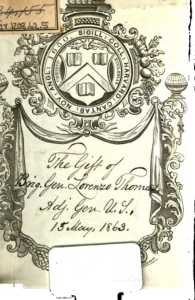 SIGILL : COLL : HARVARD : CANTAB : NOV : ANGL :
The Gift of
Brig. Gen. Lorenzo Thomas
Adj. Gen. U. S.,
15 May, 1863.